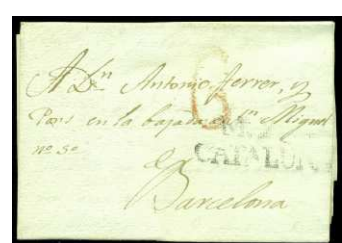 A Dn. Antonio Ferrer, y
en la bajada Sn. Miguel
no. 3o
6
CATALUÑA
en
Barcelona